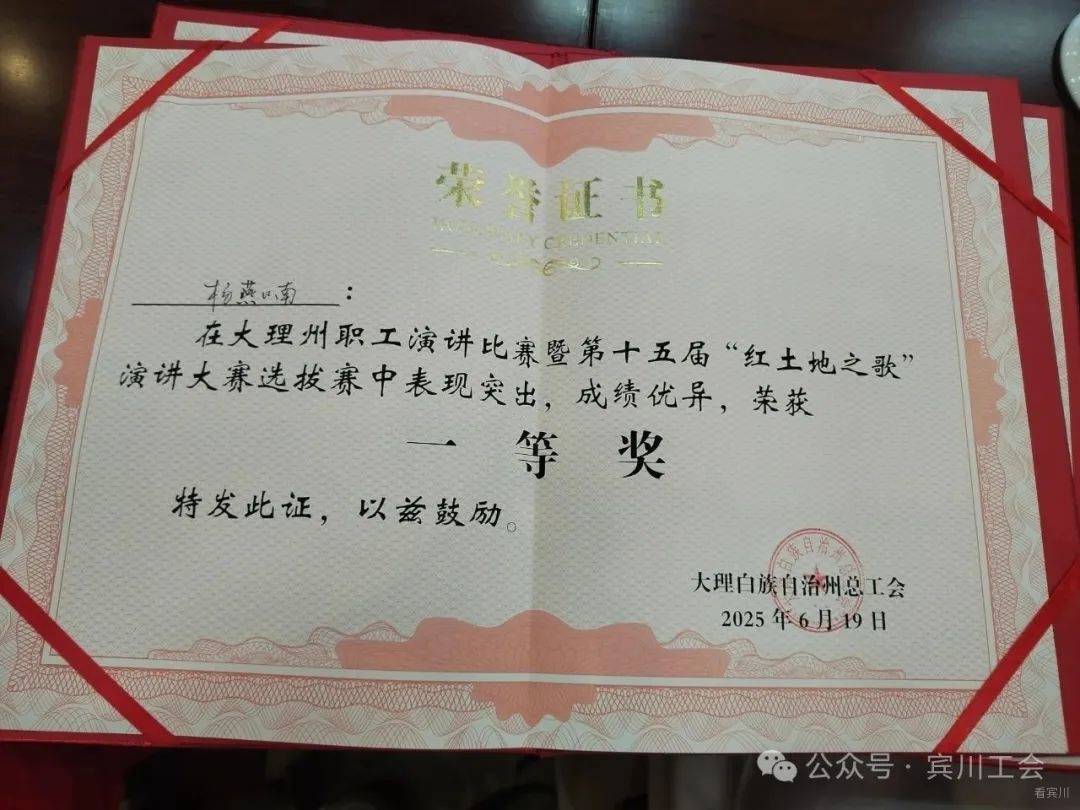 荣誉证书
杨燕喃：
在大理州职工演讲比赛暨第十五届“红土地之歌”
演讲大赛选拔赛中表现突出，成绩优异，荣获
一等奖
特发此证，以兹鼓励。
大理白族自治州总工会
2025年6月19日
公众号·宾川工会
看宾川